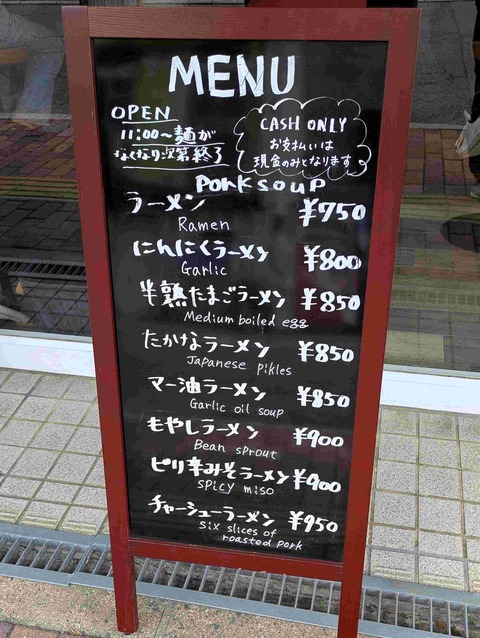 MENU
OPEN
11:00～麺が
なくなり次第終了
CASH ONLY
お支払いは
現金のみとなります。
Pork soup
ラーメン ¥750
Ramen
にんにくラーメン ¥800
Garlic
半熟たまごラーメン ¥850
Medium boiled egg
たかなラーメン ¥850
Japanese Pikles
マー油ラーメン ¥850
Garlic oil soup
もやしラーメン ¥900
Bean sprout
ピリ辛みそラーメン ¥900
spicy miso
チャーシューラーメン ¥950
six slices of
roasted pork